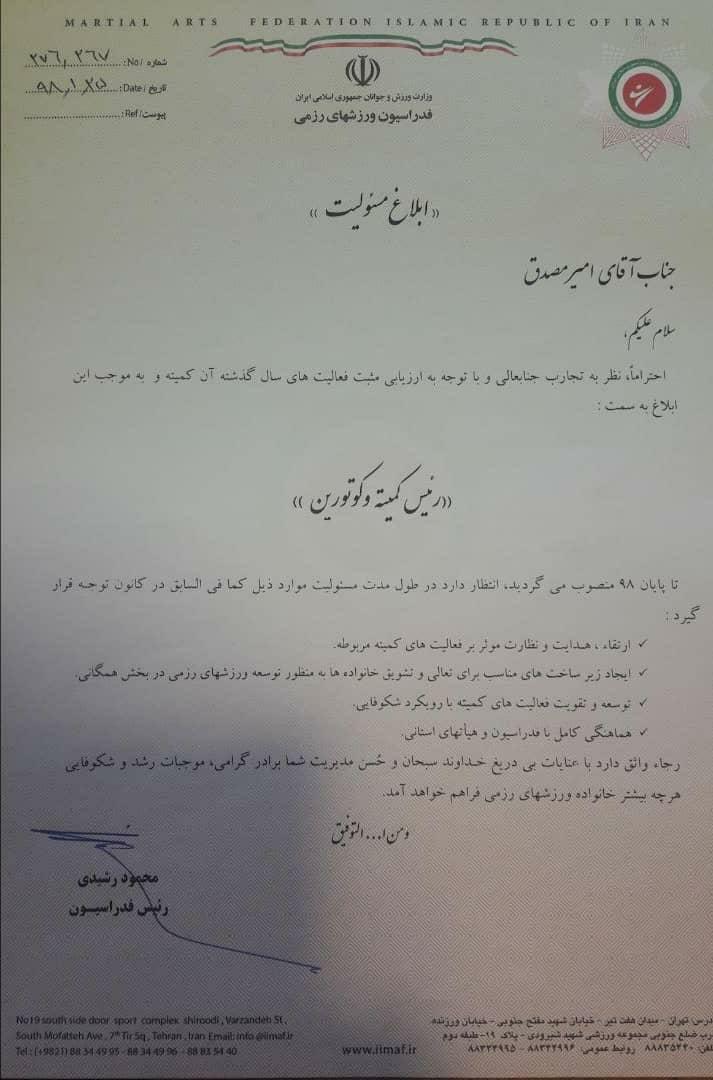 MARTIAL ARTS FEDERATION ISLAMIC REPUBLIC OF IRAN
شماره / No: ۲۷۶٫۲۶۷
تاریخ / Date: ۹۸٫۱٫۲۵
پیوست / Ref:
وزارت ورزش و جوانان جمهوری اسلامی ایران
فدراسیون ورزشهای رزمی
«ابلاغ مسئولیت»
جناب آقای امیر مصدق
سلام علیکم،
احتراماً، نظر به تجارب جنابعالی و با توجه به ارزیابی مثبت فعالیت های سال گذشته آن کمیته و به موجب این
ابلاغ به سمت :
«رئیس کمیته وکوتورین»
تا پایان ۹۸ منصوب می گردید، انتظار دارد در طول مدت مسئولیت موارد ذیل کما فی السابق در کانون توجه قرار
گیرد :
✓ ارتقاء ، هدایت و نظارت موثر بر فعالیت های کمیته مربوطه.
✓ ایجاد زیر ساخت های مناسب برای تعالی و تشویق خانواده ها به منظور توسعه ورزشهای رزمی در بخش همگانی.
✓ توسعه و تقویت فعالیت های کمیته با رویکرد شکوفایی.
✓ هماهنگی کامل با فدراسیون و هیأتهای استانی.
رجاء واثق دارد با عنایات بی دریغ خداوند سبحان و حُسن مدیریت شما برادر گرامی، موجبات رشد و شکوفایی
هرچه بیشتر خانواده ورزشهای رزمی فراهم خواهد آمد.
ومن ا... التوفیق
محمود رشیدی
رئیس فدراسیون
No19 south side door sport complex shiroodi , Varzandeh St ,
South Mofatteh Ave , 7th Tir Sq , Tehran , Iran Email: info @iimaf.ir
Tel : (+9821) 88 34 49 95 - 88 34 49 96 - 88 83 54 40
www.iimaf.ir
درس: تهران - میدان هفت تیر - خیابان شهید مفتح جنوبی - خیابان ورزنده
رب ضلع جنوبی مجموعه ورزشی شهید شیرودی - پلاک ۱۹- طبقه دوم
لفن: ۸۸۸۳۵۴۴۰ روابط عمومی: ۸۸۳۴۴۹۹۶ - ۸۸۳۴۴۹۹۵